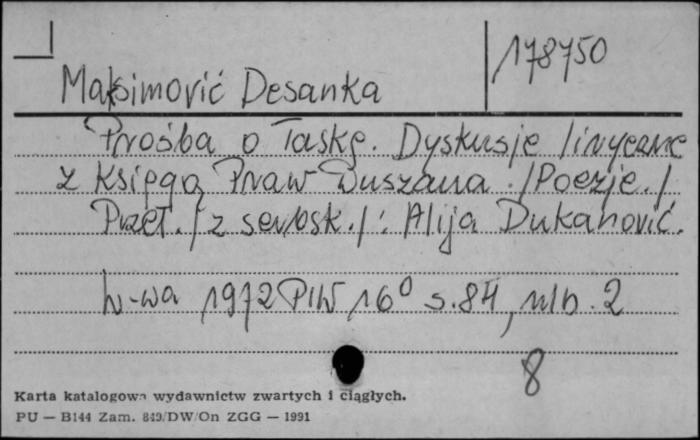 178750
Maksimović Desanka
Prośba o łaskę. Dyskusje liryczne
z Księgą Praw Duszana. /Poezje./
Przeł. /z serbsk./: Alija Dukanović.
W-wa 1972 PIW 16° s. 84, nlb. 2
8
Karta katalogowa wydawnictw zwartych i ciągłych.
PU — B144 Zam. 849/DW/On ZGG — 1991